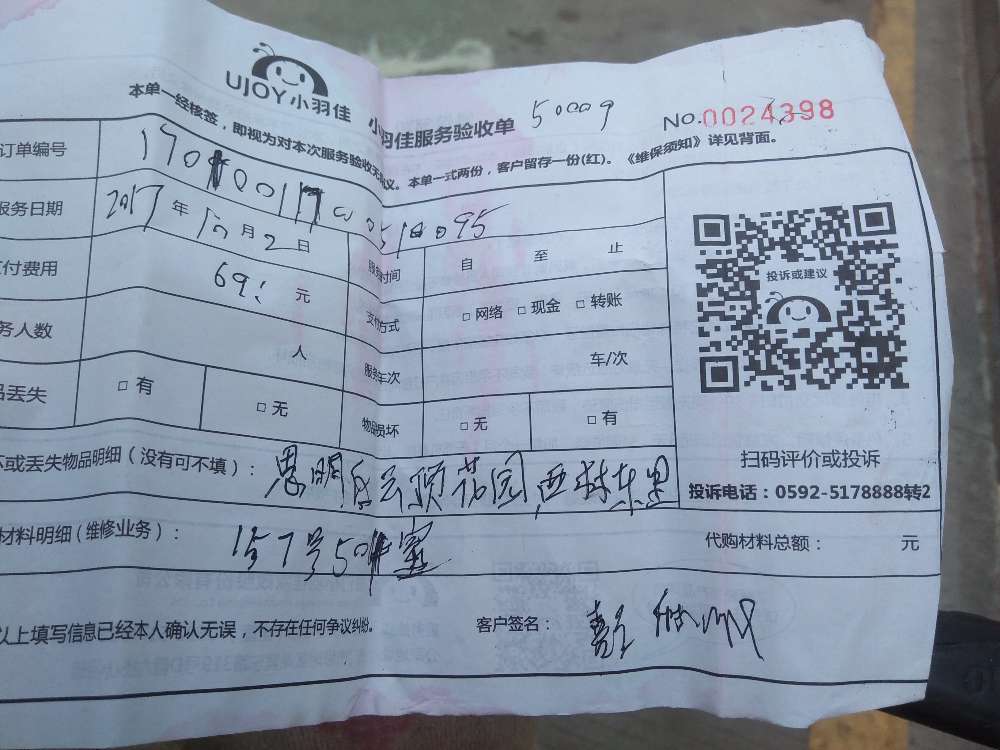 UJOY小羽佳
小羽佳服务验收单 50009
No.0024398
本单一经核签，即视为对本次服务验收无 义。本单一式两份，客户留存一份(红)。《维保须知》详见背面。
订单编号
服务日期 2017年 10月2日 服务时间 自 至 止
付费用 69 元 支付方式 □网络 □现金 □转账
务人数 人 服务车次 车/次
品丢失 □有 □无 物品损坏 □无 □有
投诉或建议
扫码评价或投诉
投诉电话：0592-5178888转2
或丢失物品明细（没有可不填）： 思明区云顶花园
材料明细（维修业务）： 157号501室
代购材料总额： 元
以上填写信息已经本人确认无误，不存在任何争议纠纷。 客户签名：